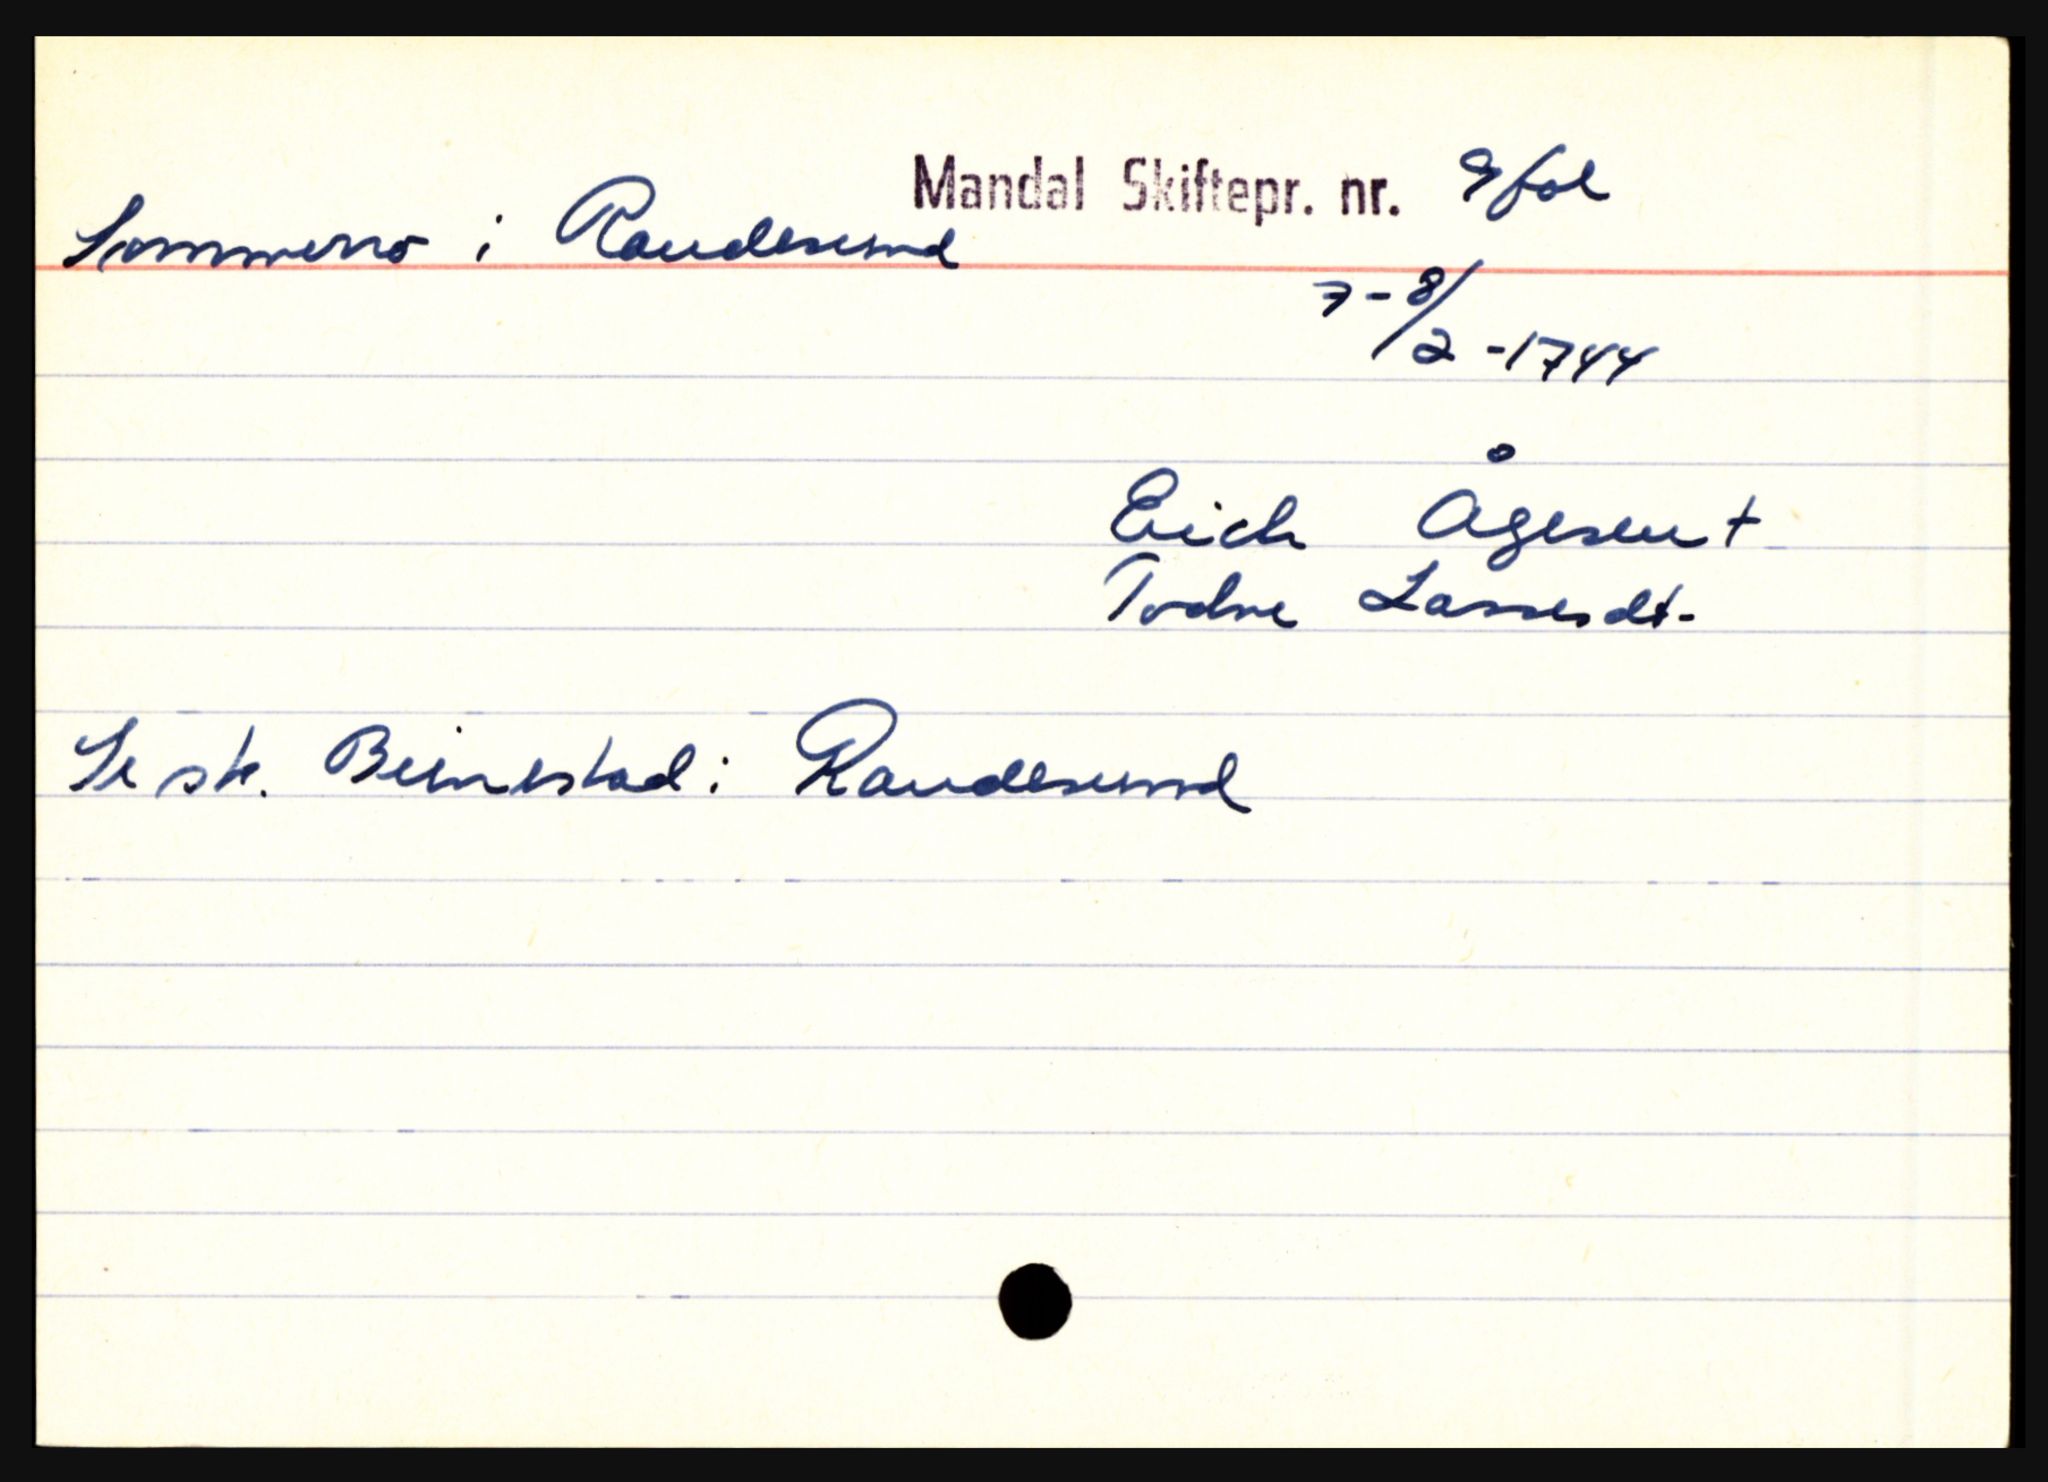 Mandal Skiftepr. nr. 9 fol
Sommerro i Randesund
7-8/2-1744
Erich Ågesen +
Todne Lassesdt.
Se sk. Beinestad i Randesund